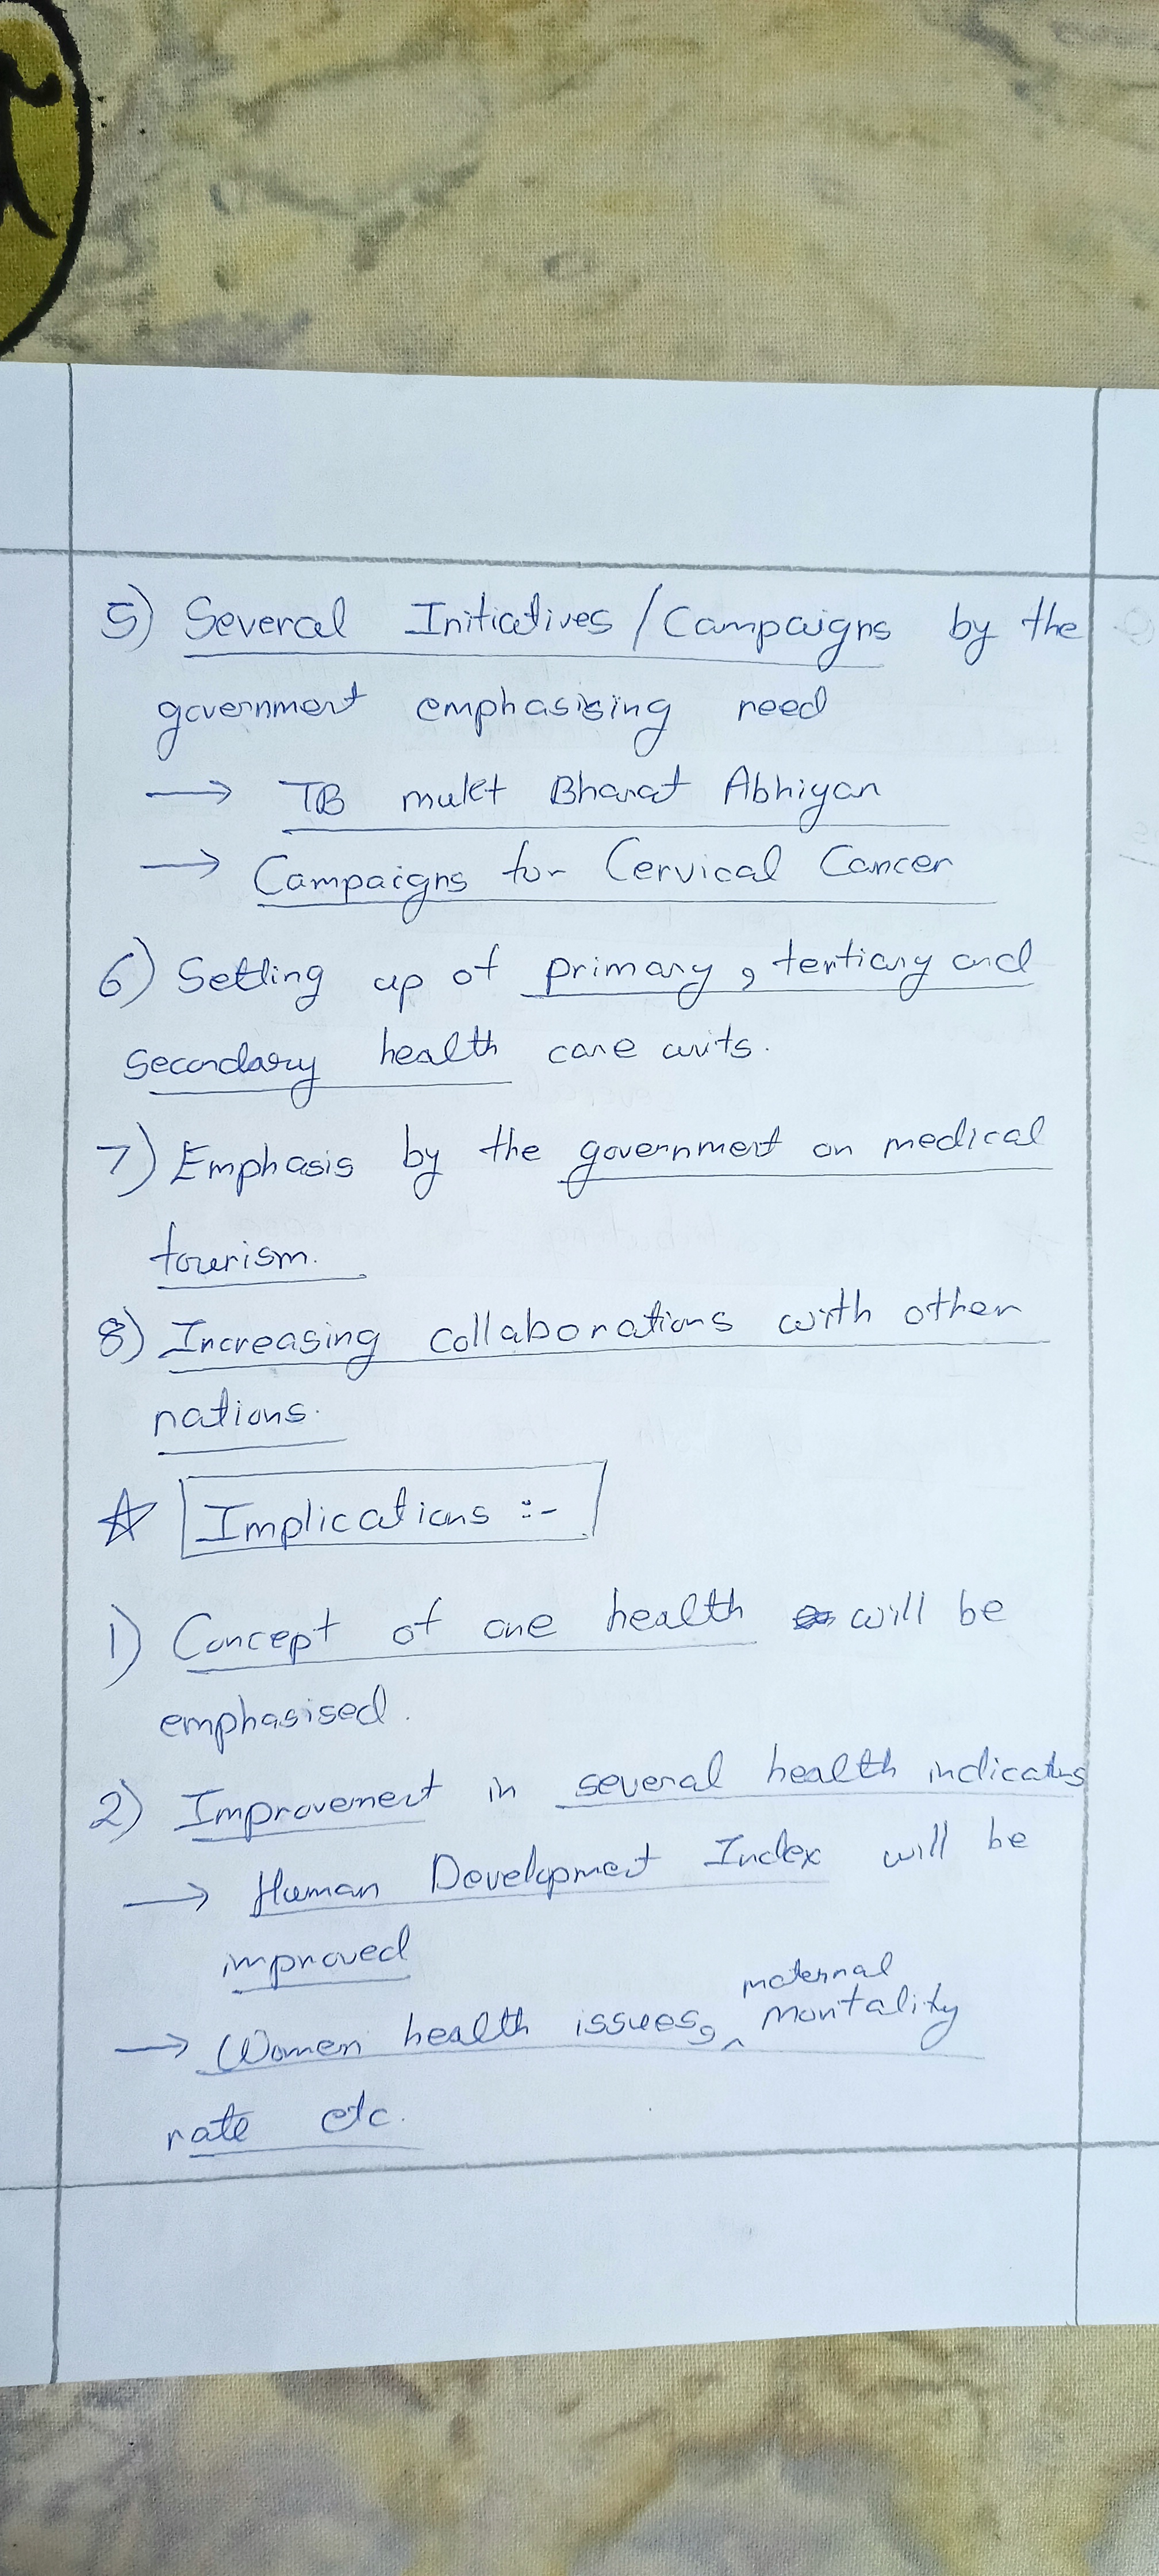 5) Several Initiatives / Campaigns by the
government emphasising need
→ TB mukt Bharat Abhiyan
→ Campaigns for Cervical Cancer
6) Setting up of primary, tertiary and
secondary health care units.
7) Emphasis by the government on medical
tourism.
8) Increasing collaborations with other
nations.
☆ Implications :-
1) Concept of one health will be
emphasised.
2) Improvement in several health indicators
→ Human Development Index will be
improved
→ Women health issues, maternal mortality
rate etc.